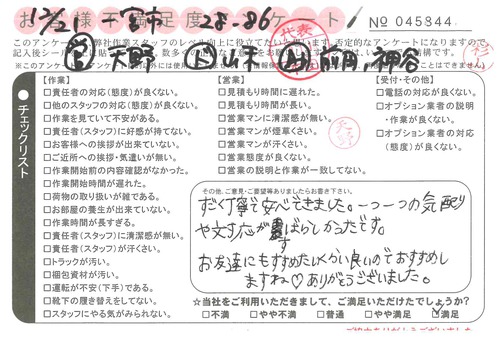 12/21 千葉市 28-86
お客様満足度アンケート!
No 045844
営 天野 ド 山本 助 前園, 神谷
【作業】
□責任者の対応(態度)が良くない。
□他のスタッフの対応(態度)が良くない。
□作業を見ていて不安がある。
□責任者(スタッフ)に好感が持てない。
□お客様への挨拶が出来ていない。
□ご近所への挨拶・気遣いが無い。
□作業開始前の内容確認がなかった。
□作業開始時間が遅れた。
□荷物の取り扱いが雑である。
□お部屋の養生が出来ていない。
□作業時間が長すぎる。
□責任者(スタッフ)に清潔感が無い。
□責任者(スタッフ)が汗くさい。
□トラックが汚い。
□梱包資材が汚い。
□運転が不安(下手)である。
□靴下の履き替えをしてない。
□スタッフにやる気がみられない。
【営業】
□見積もり時間に遅れた。
□見積もり時間が長い。
□営業マンに清潔感が無い。
□営業マンが煙草くさい。
□営業マンが汗くさい。
□営業態度が良くない。
□営業の説明と作業が一致してない。
【受付・その他】
□電話の対応が良くない。
□オプション業者の説明
・作業が良くない。
□オプション業者の対応
(態度)が良くない。
チェックリスト
その他、ご意見・ご要望等ありましたらお書き下さい。
すごく丁寧で安心できました。一つ一つの気配り
や対応がすばらしかったです。
お友達にもすすめたいくらい良いのでおすすめし
ますね♡ ありがとうございました。
☆当社をご利用いただきまして、ご満足いただけたでしょうか?
□不満 □やや不満 □普通 □やや満足 ☑満足